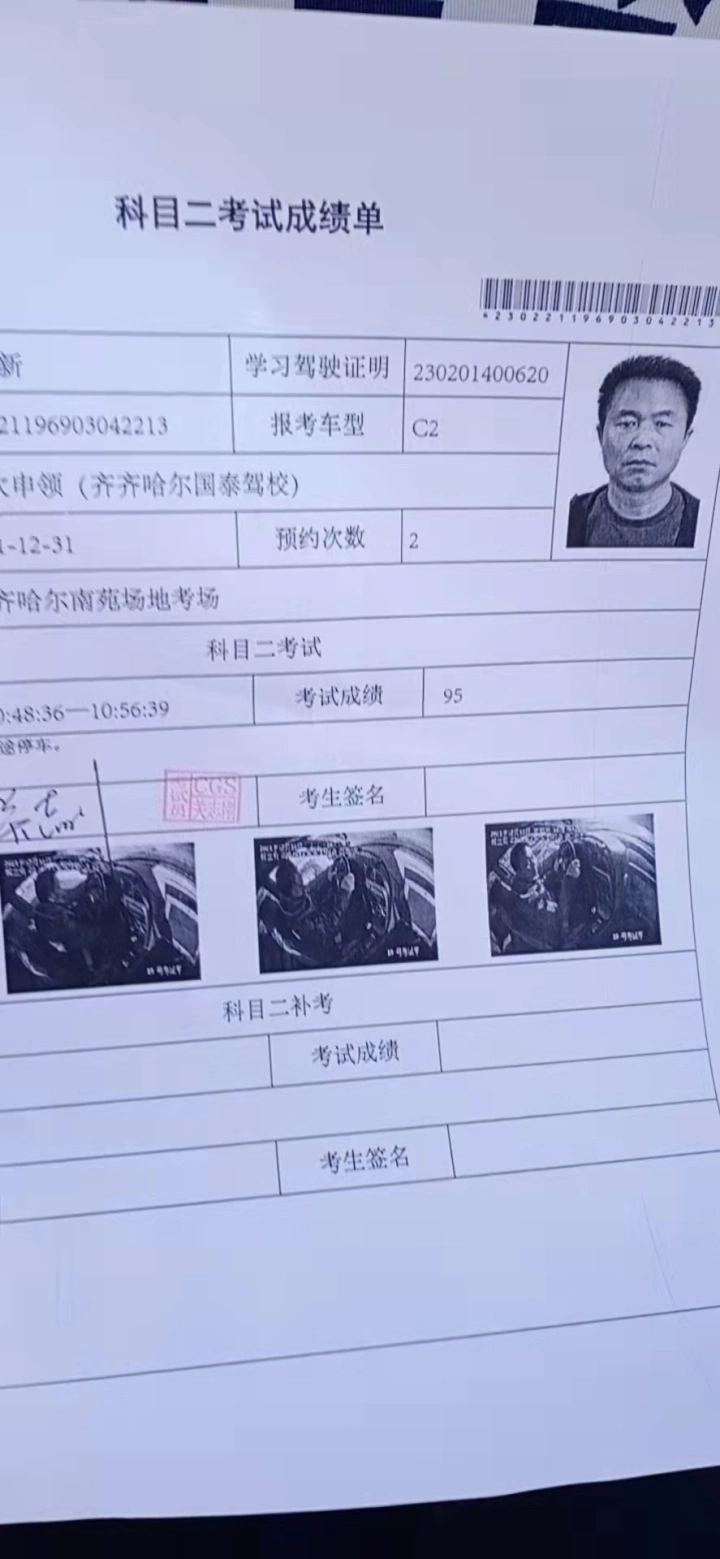 科目二考试成绩单
*230221196903042213
新 学习驾驶证明 230201400620
21196903042213 报考车型 C2
次申领（齐齐哈尔国泰驾校）
1-12-31 预约次数 2
齐哈尔南苑场地考场
科目二考试
0:48:36—10:56:39 考试成绩 95
途停车。
考试员 CGS 关志刚
考生签名
科目二补考
考试成绩
考生签名